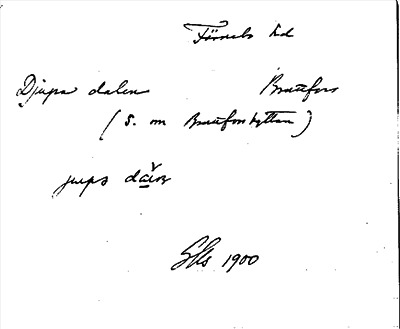 Färnebo hd
Djupa dalen Brattfors
(S. om Brattforshyttan)
jupa
1900